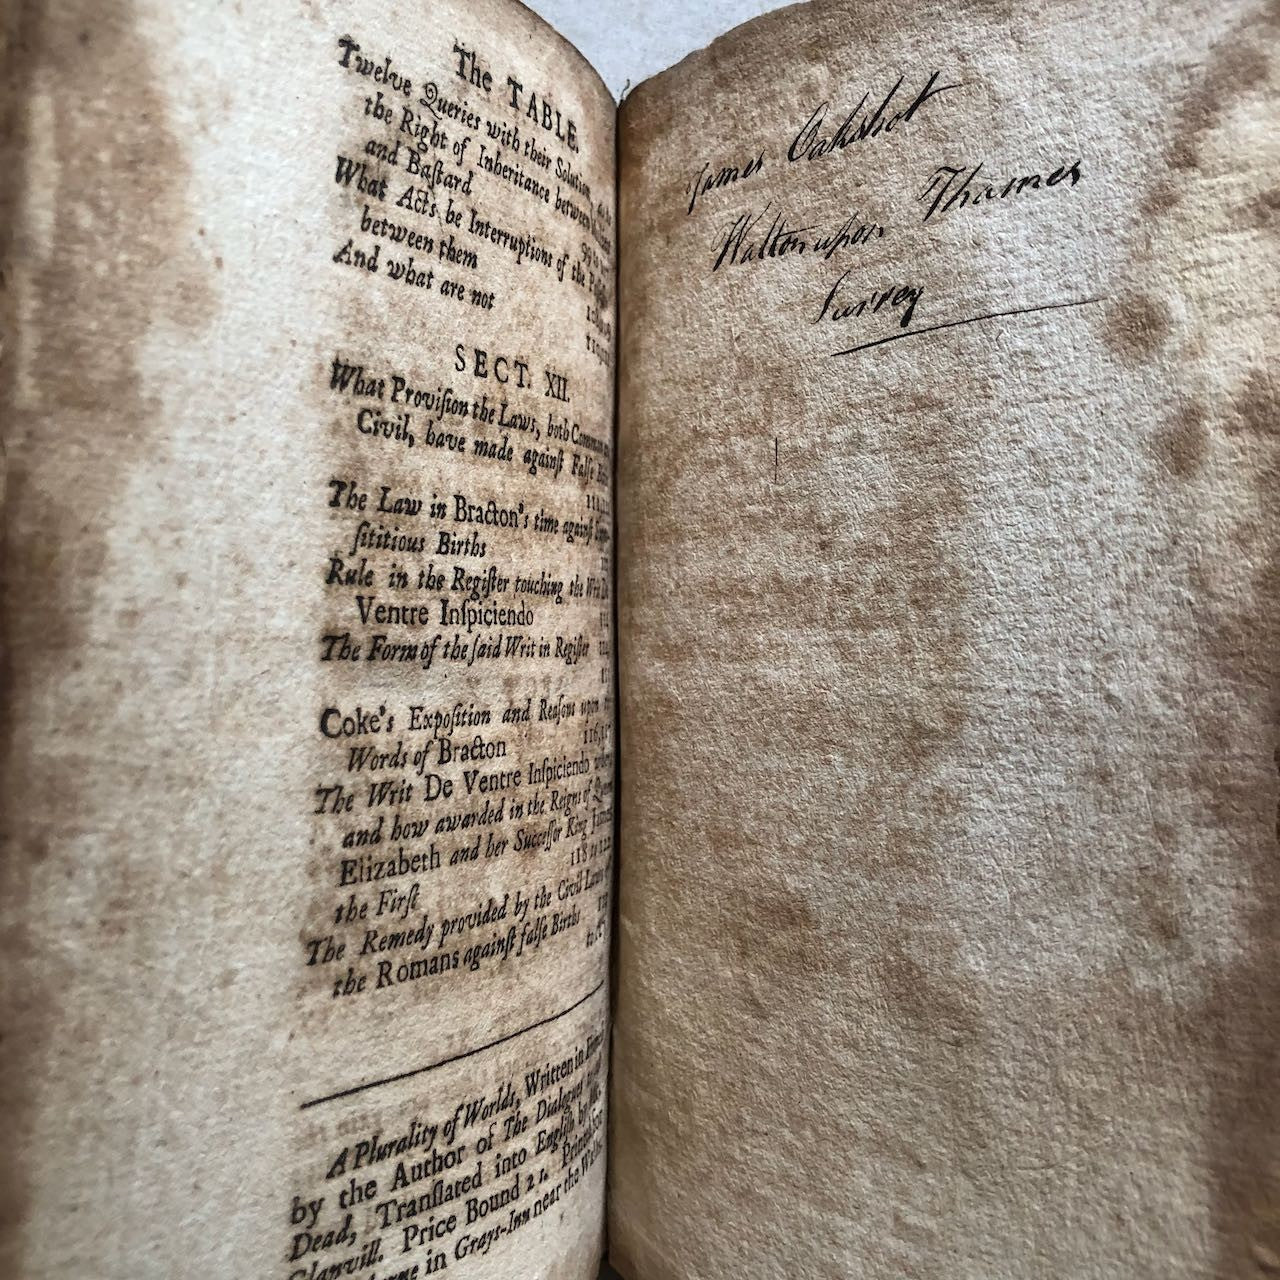 The TABLE.
Twelve Queries with their Solution,
the Right of Inheritance between
and Baſtard
What Acts be Interruptions of the
between them
And what are not
SECT. XII.
What Proviſion the Laws, both Common
Civil, have made againſt Falſe
The Law in Bracton's time againſt
ſititious Births
Rule in the Regiſter touching the Writ De
Ventre Inſpiciendo
The Form of the ſaid Writ in Regiſter
Coke's Expoſition and Reaſons upon
Words of Bracton
The Writ De Ventre Inſpiciendo
and how awarded in the Reigns of Queen
Elizabeth and her Succeſſor King James
the Firſt 118 to
The Remedy provided by the Civil Laws
the Romans againſt falſe Births
A Plurality of Worlds, Written in
by the Author of The Dialogues
Dead, Tranſlated into Engliſh by Mr.
Glanvill. Price Bound 2 s. Printed
in Grays-Inn near the
James Oakshot
Walton upon Thames
Surrey